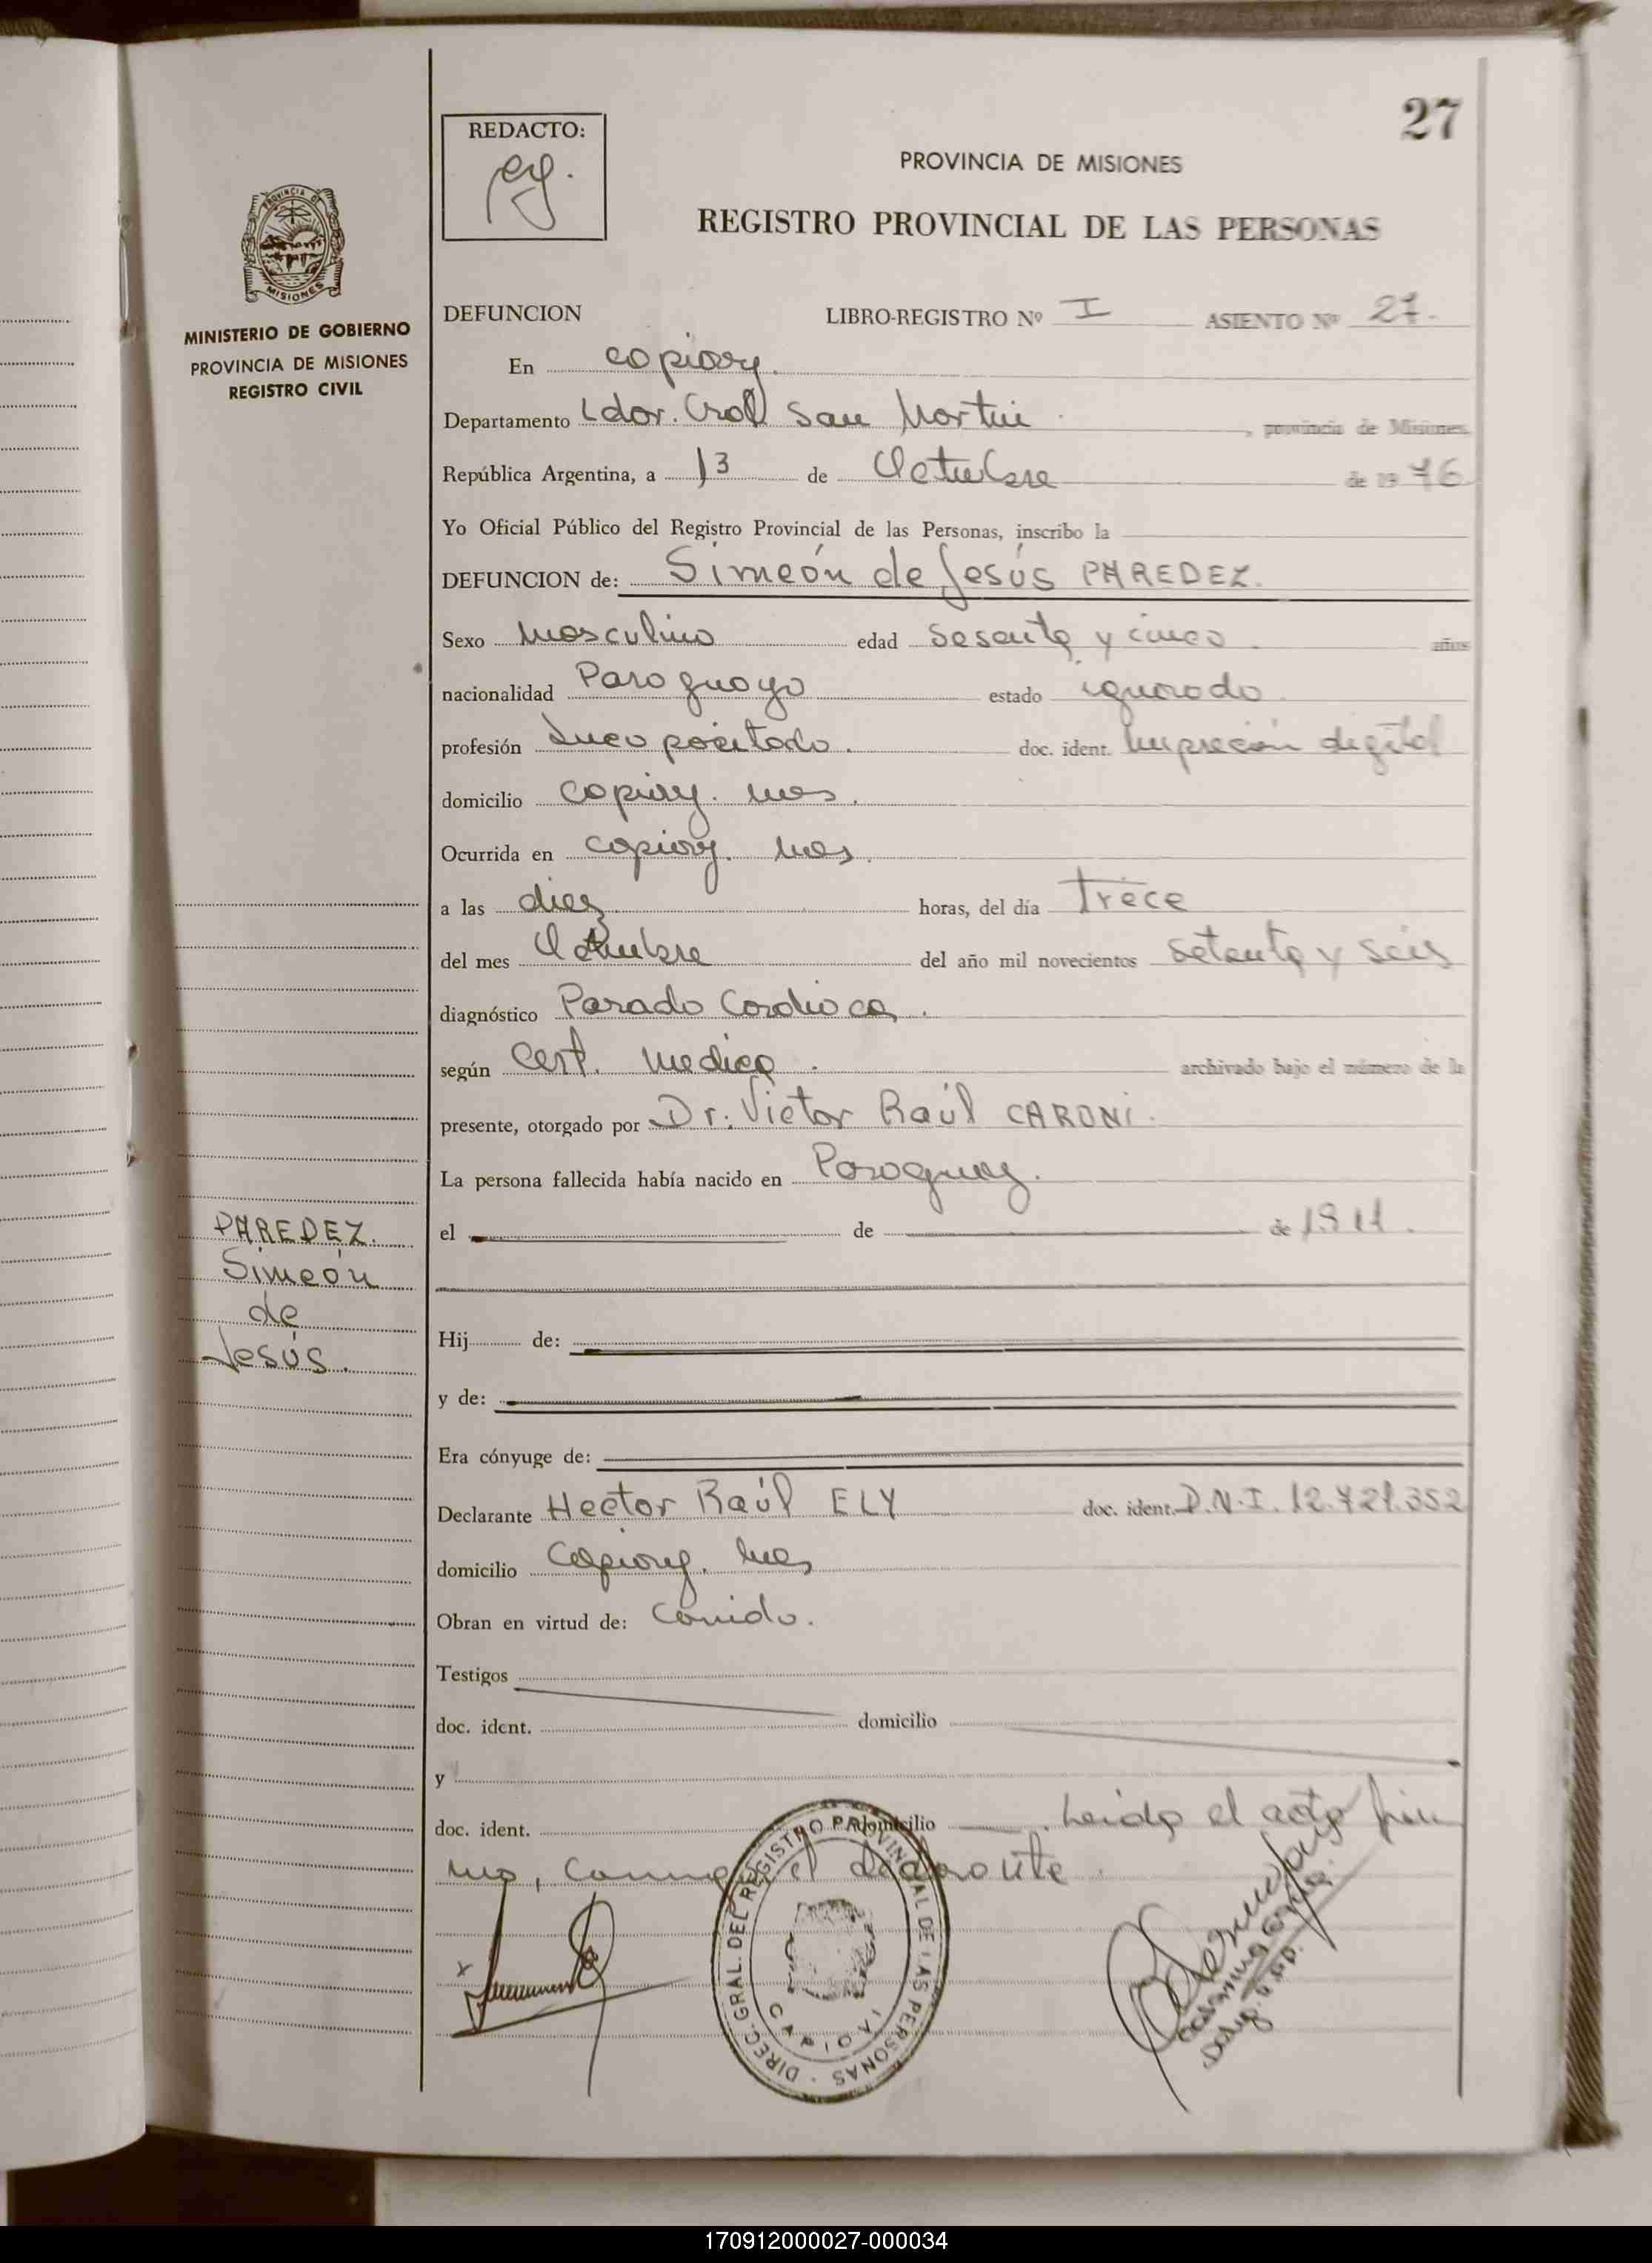 27
REDACTO:
PROVINCIA DE MISIONES
REGISTRO PROVINCIAL DE LAS PERSONAS
PROVINCIA DE
MISIONES
MINISTERIO DE GOBIERNO
PROVINCIA DE MISIONES
REGISTRO CIVIL
DEFUNCION LIBRO-REGISTRO Nº I ASIENTO Nº 27.
En Capiovy.
Departamento Ldor. Gral San Martin , provincia de Misiones
República Argentina, a 13 de Octubre de 1976
Yo Oficial Público del Registro Provincial de las Personas, inscribo la
DEFUNCION de: Simeón de Jesús PAREDEZ.
Sexo Masculino edad Sesenta y cinco años
nacionalidad Paraguayo estado ignorado
profesión Incapacitado. doc. ident. Impresión digital
domicilio Capiovy. Mnes.
Ocurrida en Capiovy. Mnes.
a las diez horas, del día Trece
del mes Octubre del año mil novecientos Setenta y Seis
diagnóstico Parado Cardiaca.
según Cert. Medico. archivado bajo el número de la
presente, otorgado por Dr. Victor Raúl CARONI.
La persona fallecida había nacido en Paraguay.
el de de 1911.
PAREDEZ.
Simeón
de
Jesús.
Hij de:
y de:
Era cónyuge de:
Declarante Hector Raúl ELY doc. ident. D.N.I. 12.721.352
domicilio Capiovy. Mnes
Obran en virtud de: Conido.
Testigos
doc. ident. domicilio
y
doc. ident. domicilio Leida el acta firma, conmigo el declarante.
DIREC. GRAL. DEL REGISTRO PROVINCIAL DE LAS PERSONAS
CAPIOVI
170912000027-000034